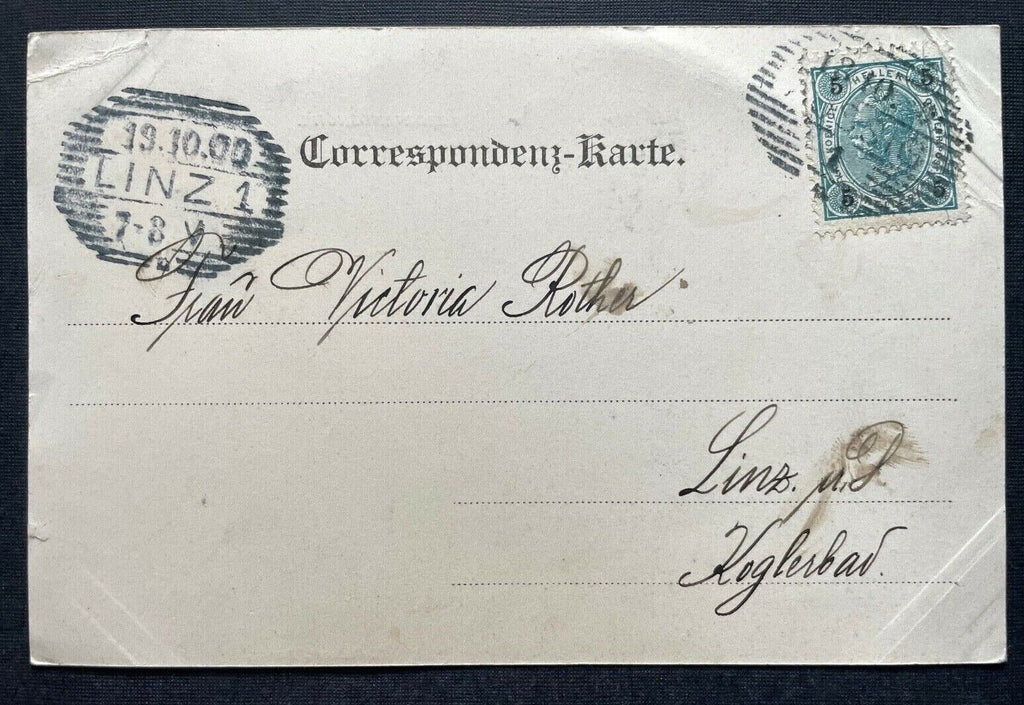 19.10.00
LINZ 1
7-8 V
Correspondenz-Karte.
5 HELLER 5
5 5
Frau Victoria Rother
Linz.
Koglerbad.